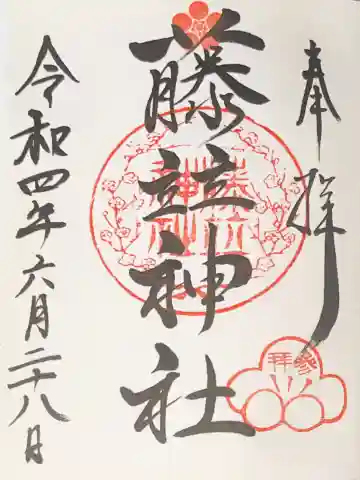 奉拝
藤並神社
令和四年六月二十八日
参拝